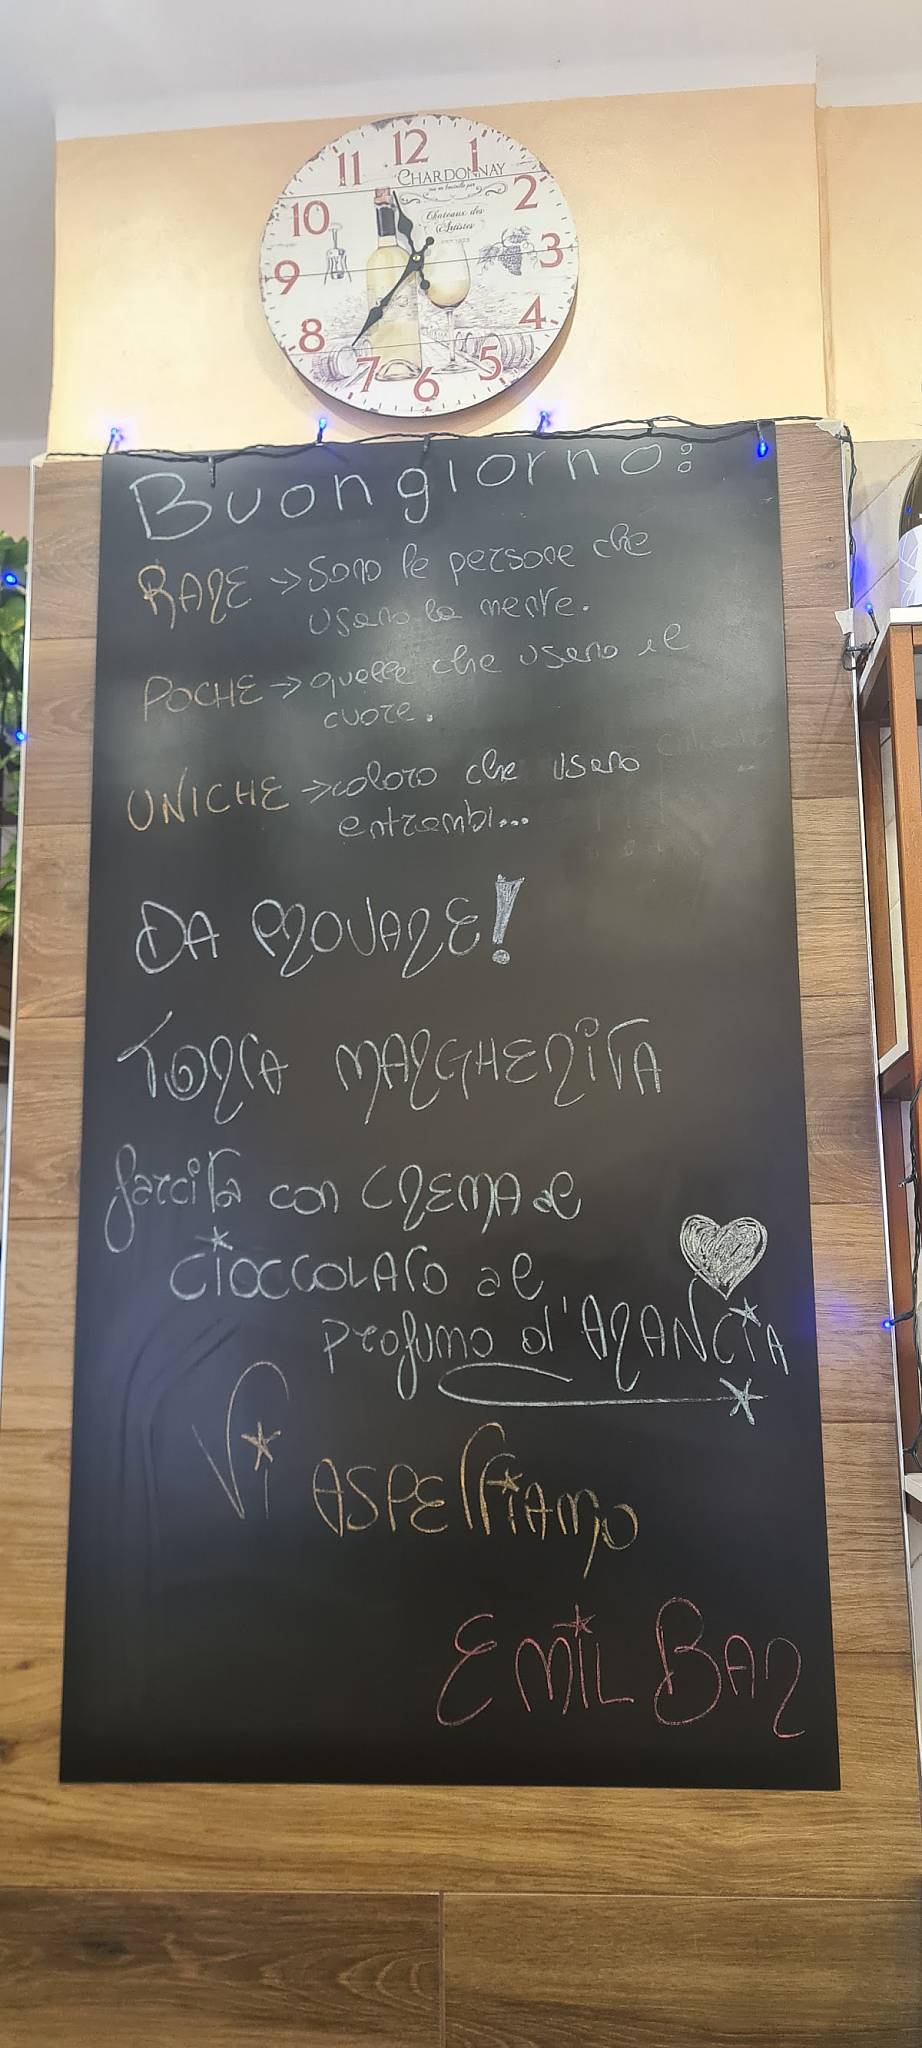 12
11
1
CHARDONNAY
10
2
Chateaux des
Artistes
9
3
8
4
7
5
6
Buongiorno:
RARE → Sono le persone che
usano la mente.
POCHE → quelle che usano il
cuore.
UNICHE → coloro che usano
entrambi...
DA PROVARE!
TORTA MARGHERITA
farcita con CREMA al
CIOCCOLATO al
profumo d'ARANCIA
Vi ASPETTIAMO
EMIL BAR